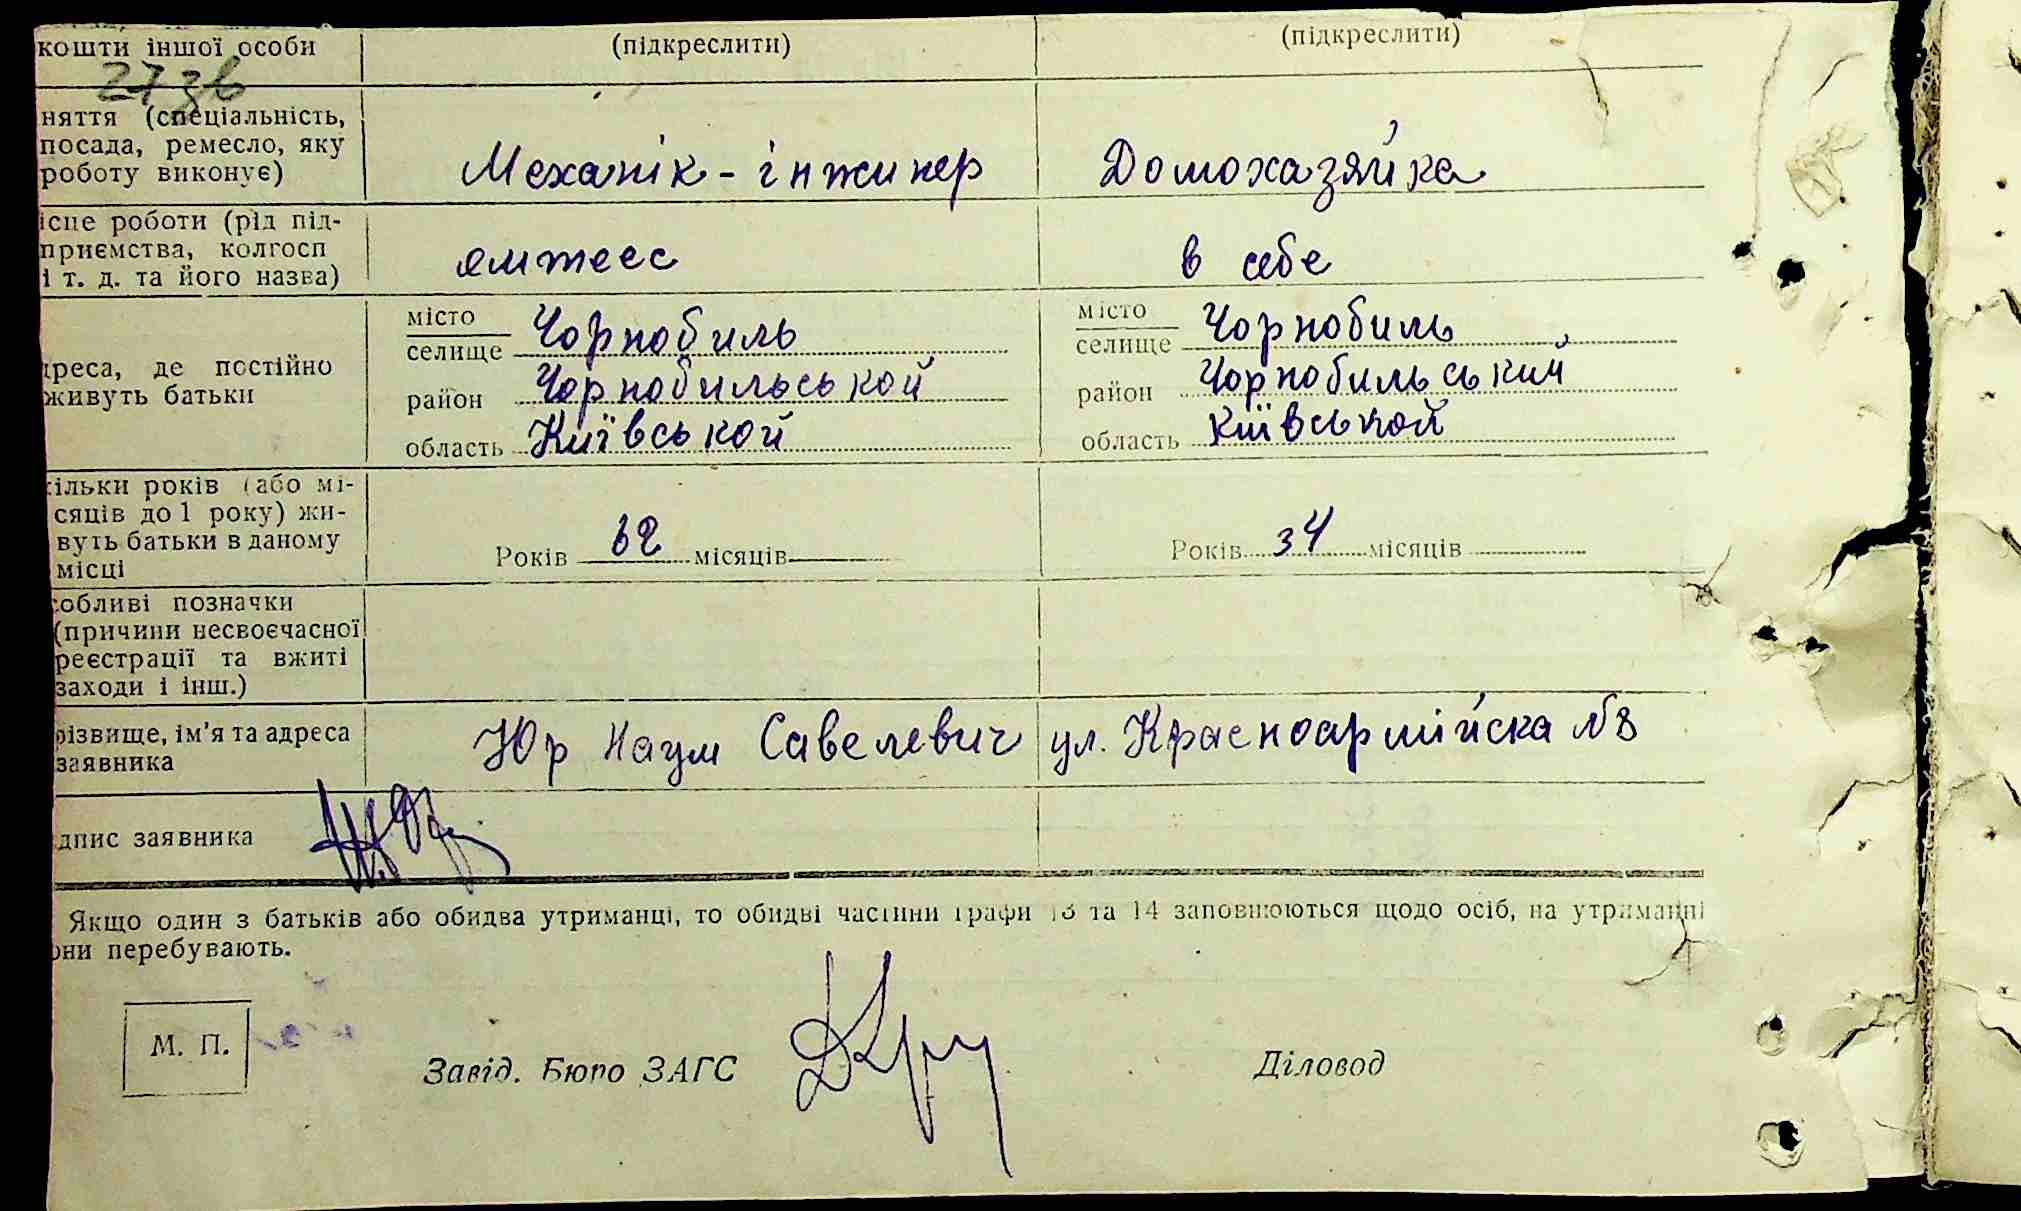 кошти іншої особи (підкреслити) (підкреслити)
27 зв
няття (спеціальність,
посада, ремесло, яку
роботу виконує) Механік - інжинер Домохазяйка
ісце роботи (рід під-
приємства, колгосп
і т. д. та його назва) в себе
місто Чорнобиль місто Чорнобиль
селище селище
дреса, де постійно
живуть батьки район Чорнобильської район Чорнобильський
область Київської область Київської
кільки років (або мі-
сяців до 1 року) жи-
вуть батьки в даному
місці Років 32 місяців Років 34 місяців
собливі позначки
(причини несвоєчасної
реєстрації та вжиті
заходи і інш.)
різвище, ім'я та адреса
заявника Юр Наум Савелевич ул. Красноармійска №8
дпис заявника
Якщо один з батьків або обидва утриманці, то обидві частини графи 13 та 14 заповнюються щодо осіб, на утриманні
они перебувають.
М. П.
Завід. Бюро ЗАГС Діловод